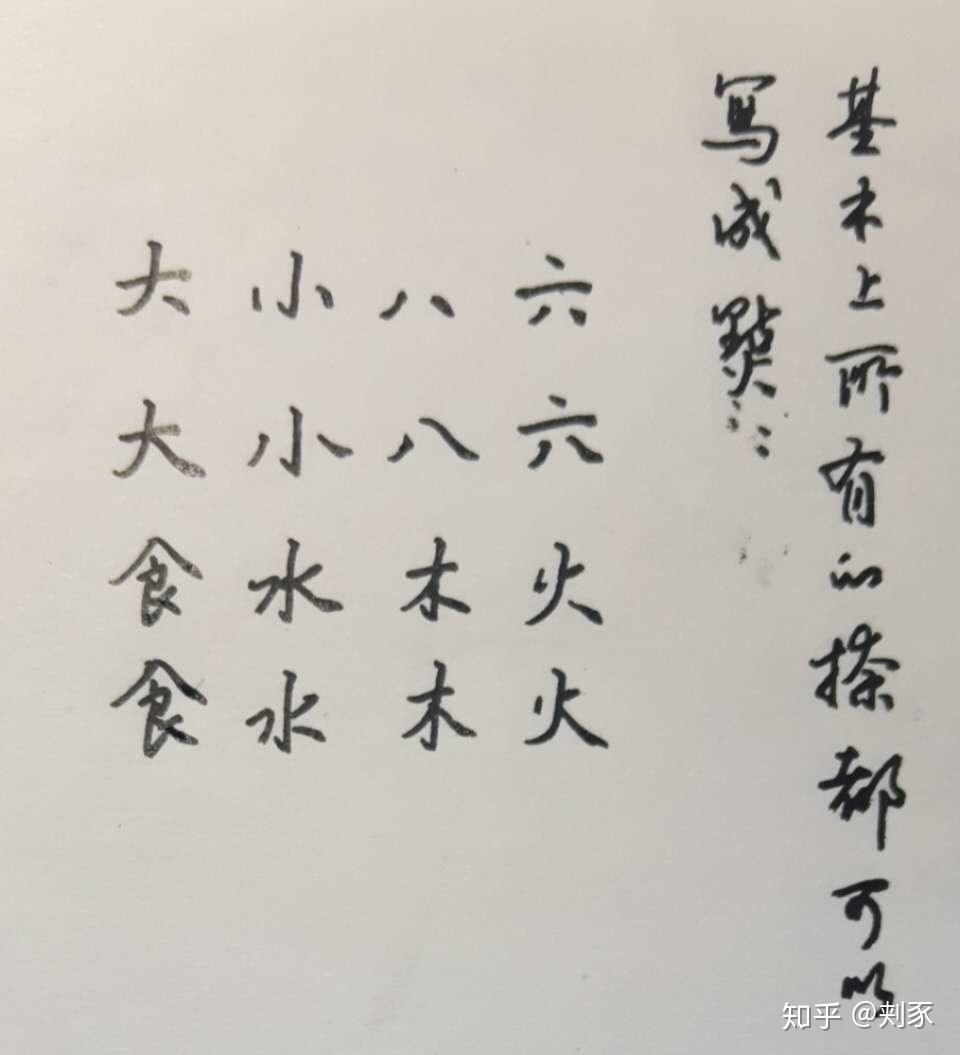 基本上所有的捺都可以
寫成點……
大小八六
大小八六
食水木火
食水木火
知乎 @刺豕